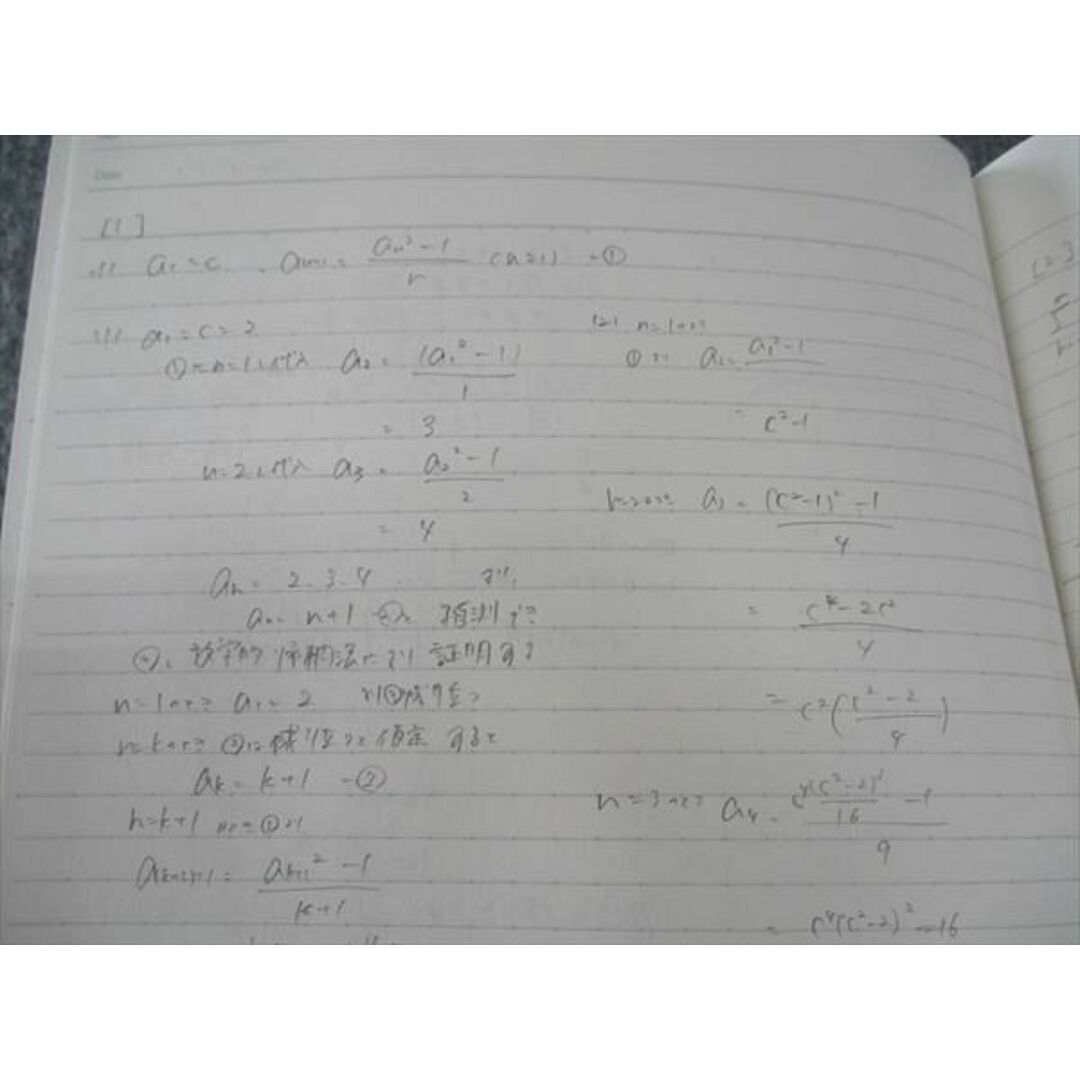 Date
[1]
a₁ = c, aₙ₊₁ = (aₙ² - 1)/n (n≧1) -①
(1) a₁ = c = 2
①に n=1を代入 a₂ = (a₁² - 1)/1
= 3
n=2を代入 a₃ = (a₂² - 1)/2
= 4
aₙ = 2. 3. 4 ... より
aₙ = n+1 -②と 推測でき
②を 数学的帰納法により 証明する
n=1のとき a₁ = 2 より②成り立つ
n=kのとき ②が成り立つと仮定すると
aₖ = k+1 -③
n=k+1のとき ①より
a₍ₖ₊₁₎₊₁ = (aₖ₊₁² - 1)/(k+1)
(2) n=1のとき
①より a₂ = a₁² - 1
= c² - 1
n=2のとき a₃ = ((c²-1)² - 1)/4
= (c⁴ - 2c²)/4
= c²((c² - 2)/4)
n=3のとき a₄ = (c⁴(c²-2)²/16 - 1)/9
= c⁴(c²-2)² - 16